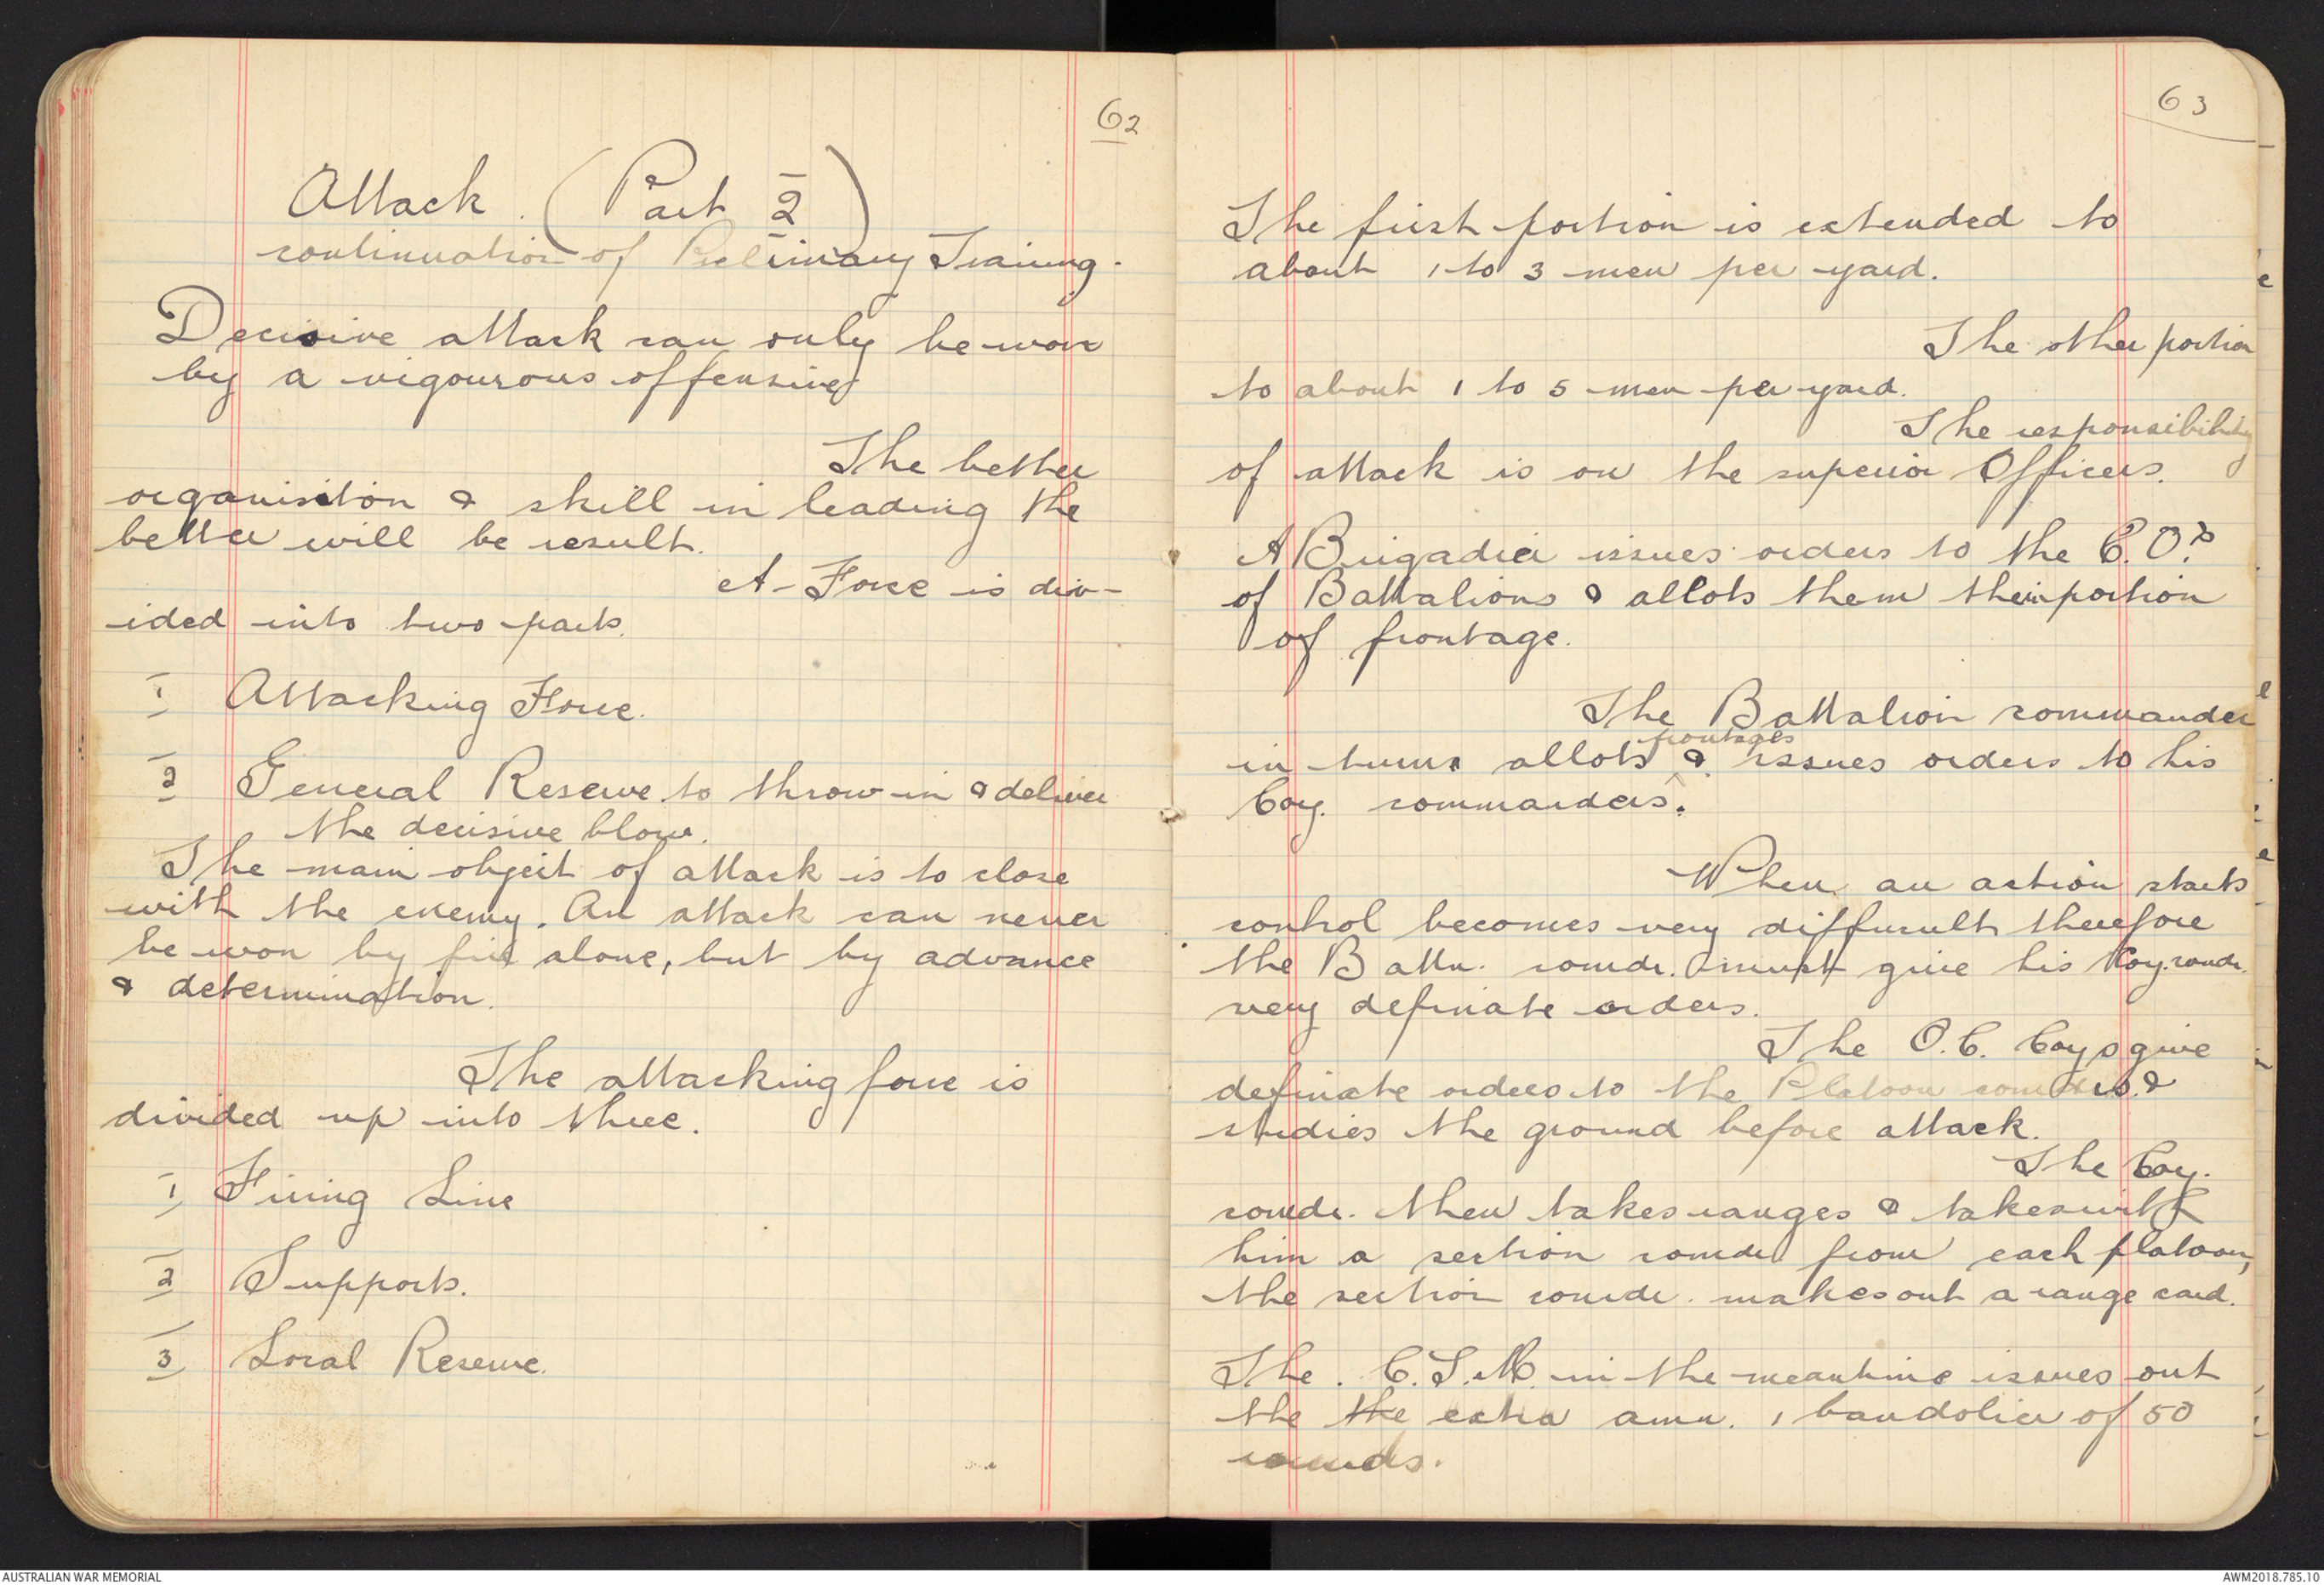 62
Attack. (Part 2)
continuation of Preliminary Training.
Decisive attack can only be won
by a vigourous offensive
The better
organisition & skill in leading the
better will be result.
A Force is div-
ided into two parts.
1 Attacking Force.
2 General Reserve to throw in & deliver
the decisive blow.
The main object of attack is to close
with the enemy. An attack can never
be won by fire alone, but by advance
& determination.
The attacking force is
divided up into three.
1 Firing Line
2 Supports.
3 Local Reserve.
63
The first portion is extended to
about 1 to 3 men per yard.
The other portion
to about 1 to 5 men per yard.
The responsibility
of attack is on the superior Officers.
A Brigadier issues orders to the C.O's
of Battalions & allots them their portion
of frontage.
The Battalion commander
frontages
in turns allots & issues orders to his
Coy. commanders.
When an action starts
control becomes very diffucult therefore
the Battn. comdr. must give his Coy. comdr.
very definate orders.
The O.C. Coys give
definate orders to the Platoon comdrs. &
studies the ground before attack.
The Coy.
comdr. then takes ranges & takes with
him a section comdr from each platoon,
the section comdr. makes out a range card.
The C.S.M. in the meantime issues out
the the extra amn. 1 bandolier of 50
rounds.
AUSTRALIAN WAR MEMORIAL
AWM2018.785.10